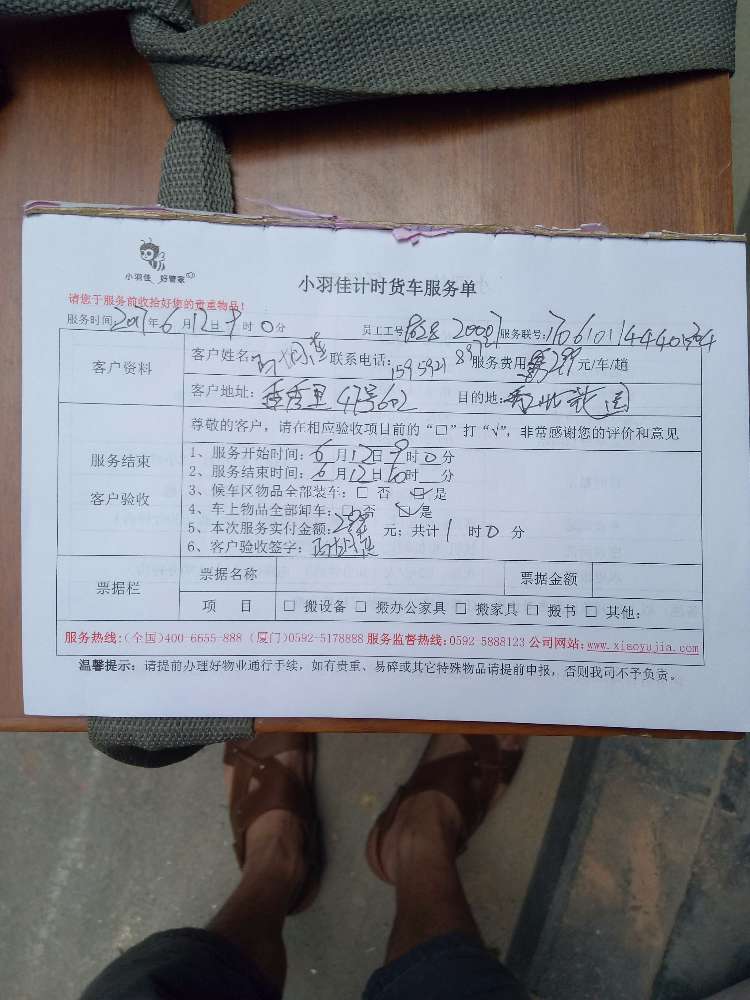 小羽佳 好管家
小羽佳计时货车服务单
请您于服务前收拾好您的贵重物品!
服务时间: 2017年6月12日9时0分 员工工号 服务联号:
客户资料
客户姓名: 联系电话: 服务费用 299元/车/趟
客户地址: 香秀里47号602 目的地:
服务结束
客户验收
尊敬的客户，请在相应验收项目前的“□”打“√”，非常感谢您的评价和意见
1、服务开始时间: 6月12日9时0分
2、服务结束时间: 6月12日10时__分
3、候车区物品全部装车: □ 否 ☑是
4、车上物品全部卸车: □否 ☑是
5、本次服务实付金额: 299 元: 共计1时0分
6、客户验收签字:
票据栏
票据名称 票据金额
项 目 □ 搬设备 □ 搬办公家具 □ 搬家具 □ 搬书 □ 其他:
服务热线:(全国)400-6655-888 (厦门)0592-5178888 服务监督热线:0592 5888123 公司网站:www.xiaoyujia.com
温馨提示: 请提前办理好物业通行手续，如有贵重、易碎或其它特殊物品请提前申报，否则我司不予负责。